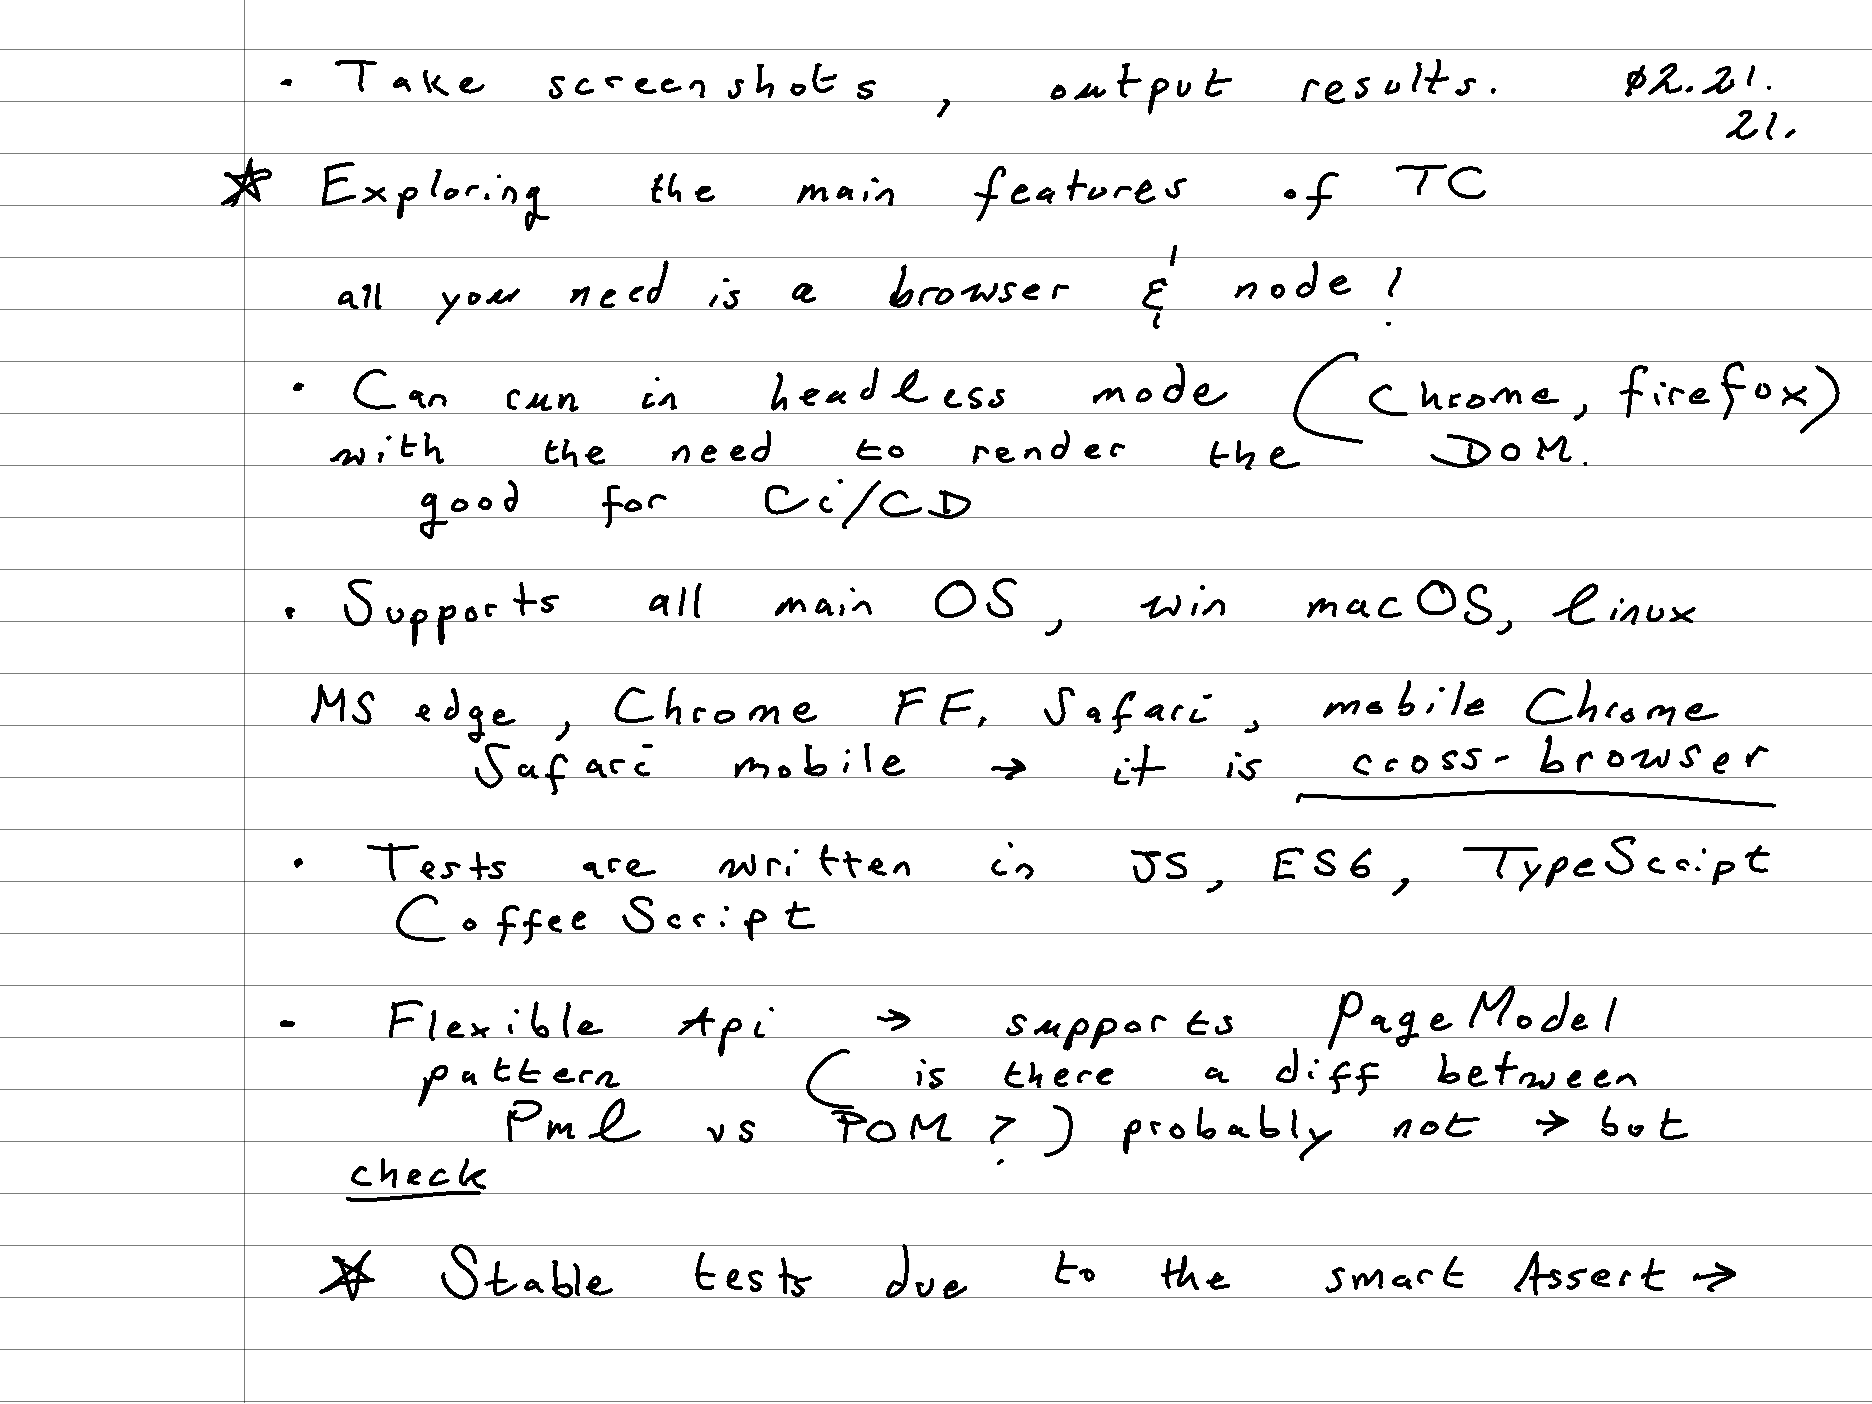 · Take screenshots, output results. 02.21.
21.
☆ Exploring the main features of TC
all you need is a browser & node!
· Can run in headless mode (Chrome, firefox)
with the need to render the DOM.
good for Ci/CD
· Supports all main OS, win macOS, linux
MS edge, Chrome FF, Safari, mobile Chrome
Safari mobile → it is cross-browser
· Tests are written in JS, ES6, TypeScript
CoffeeScript
- Flexible Api → supports PageModel
pattern ( is there a diff between
Pml vs POM ?) probably not → but
check
☆ Stable tests due to the smart Assert →